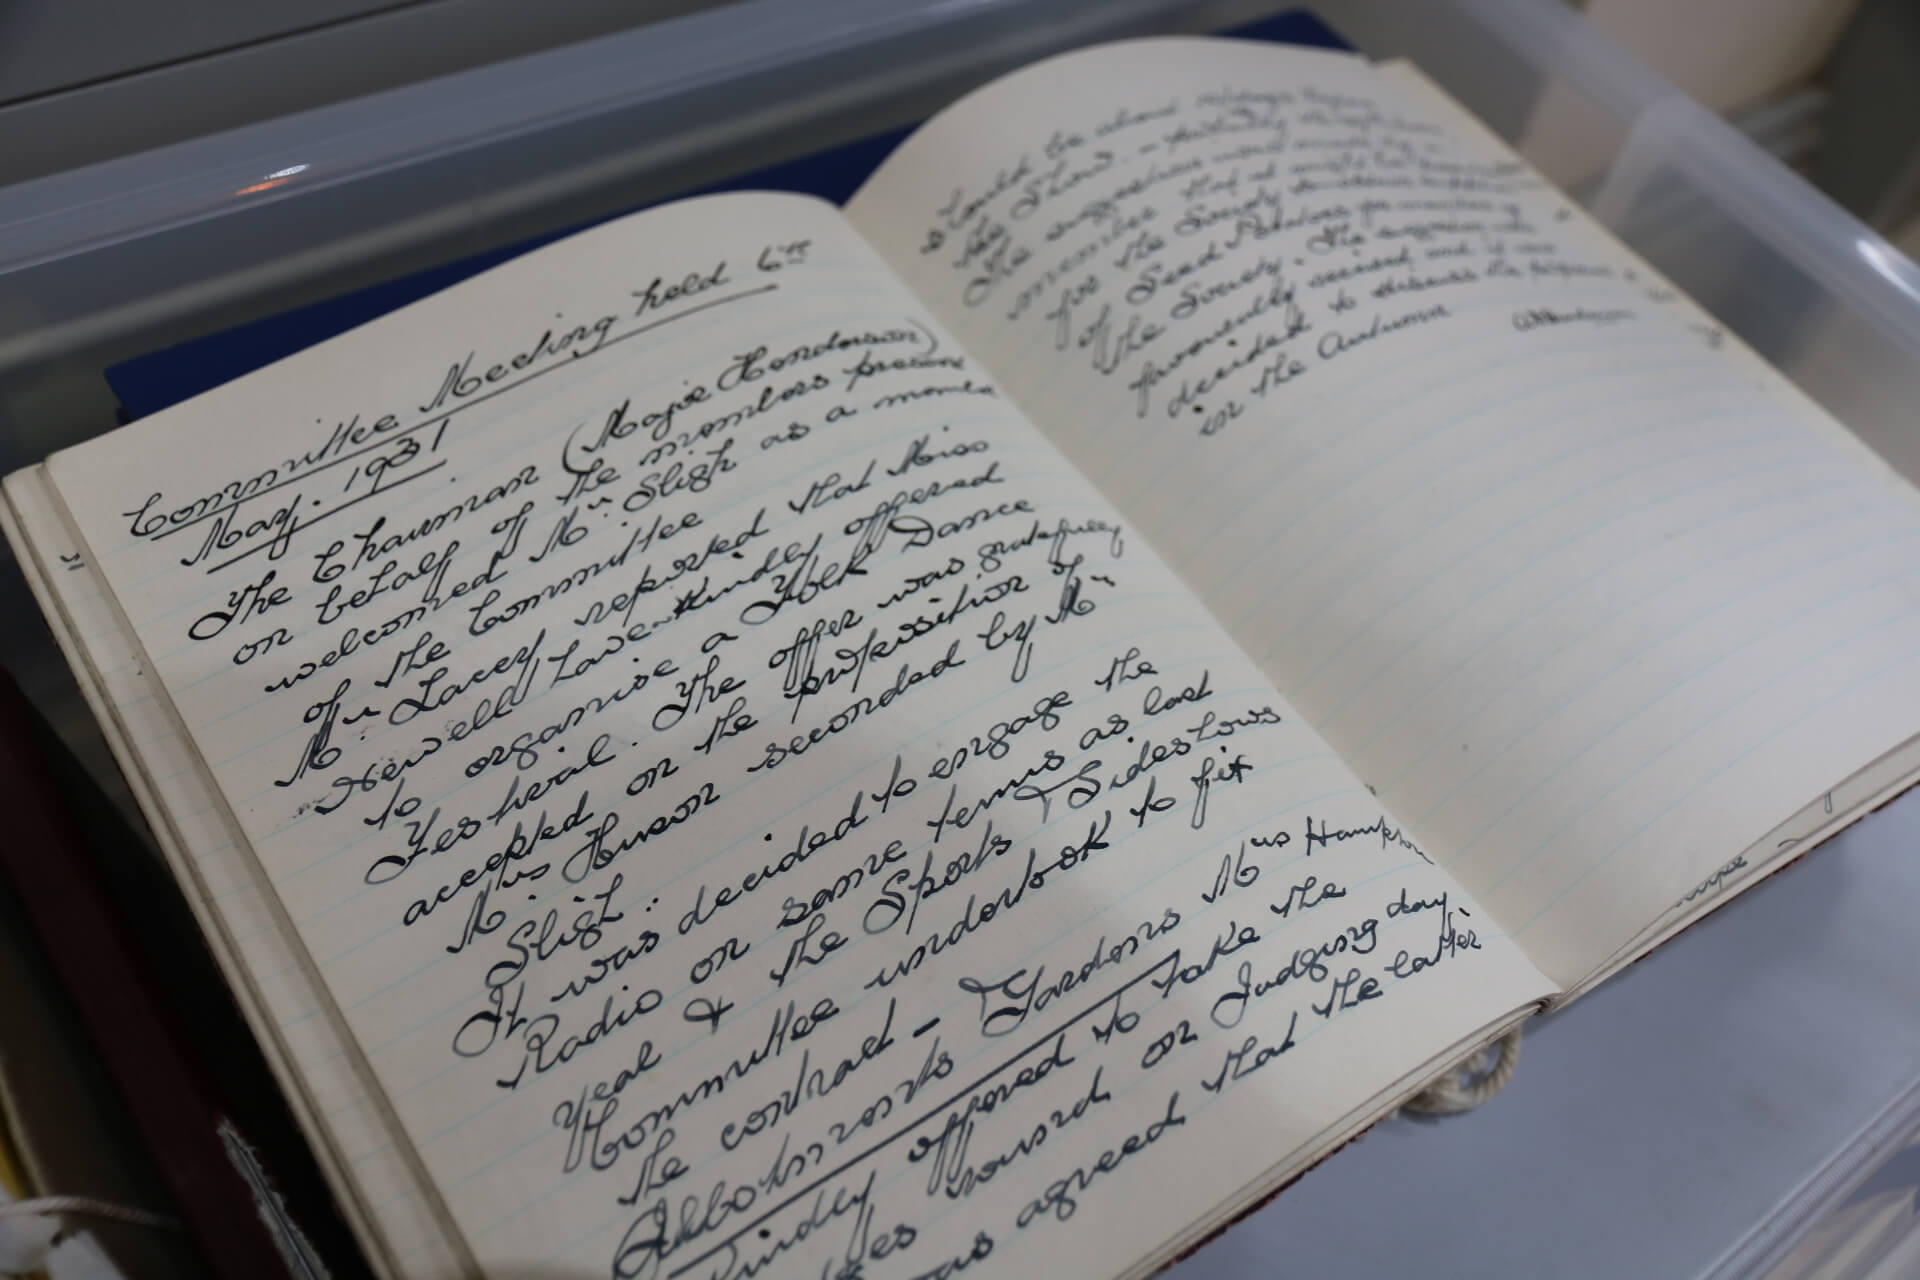 Committee Meeting held 6th
May. 1931.
The Chairman (Major Henderson)
on behalf of the members present
welcomed Mr. Sligh as a member
of the Committee
Mr. Lacey reported that Miss
Newell have kindly offered
to organise a Folk Dance
Festival. The offer was gratefully
accepted on the proposition of
Mrs Huson seconded by Mr
Sligh.
It was decided to engage the
Radio on same terms as last
year & the Sports Sideshows
Committee undertook to fix
the contract –
Allotments Gardens Mrs
kindly offered to take the
round on Judging day
as agreed that the latter
could be about
the Show. –
The suggestion
member that it might be
for the Society
of Seed Potatoes for members of
the Society. The suggestion was
favourably received and it was
decided to discuss the
in the Autumn